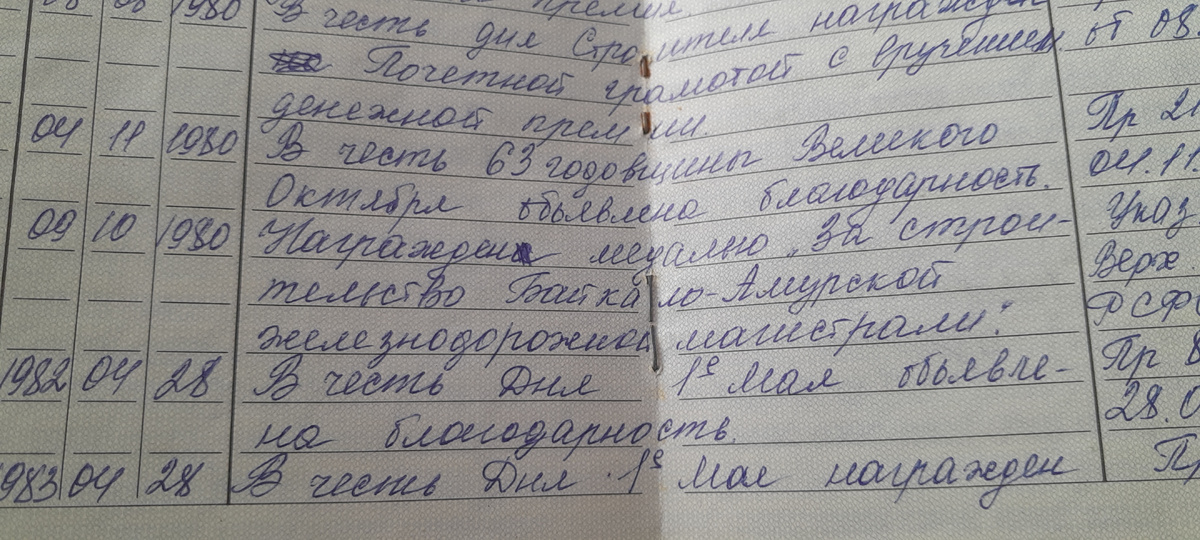 1980 премия.
В честь дня Строителя награжден
Почетной грамотой с вручением от 08
денежной премии.
04 11 1980 В честь 63 годовщины Великого Пр 21
Октября объявлена благодарность. 04.11
09 10 1980 Награжден медалью „За строи- Указ
тельство Байкало-Амурской Верх
железнодорожной магистрали" РСФ
1982 04 28 В честь Дня 1е Мая объявле- Пр 8
на благодарность. 28.0
983 04 28 В честь Дня 1е Мая награжден Пр